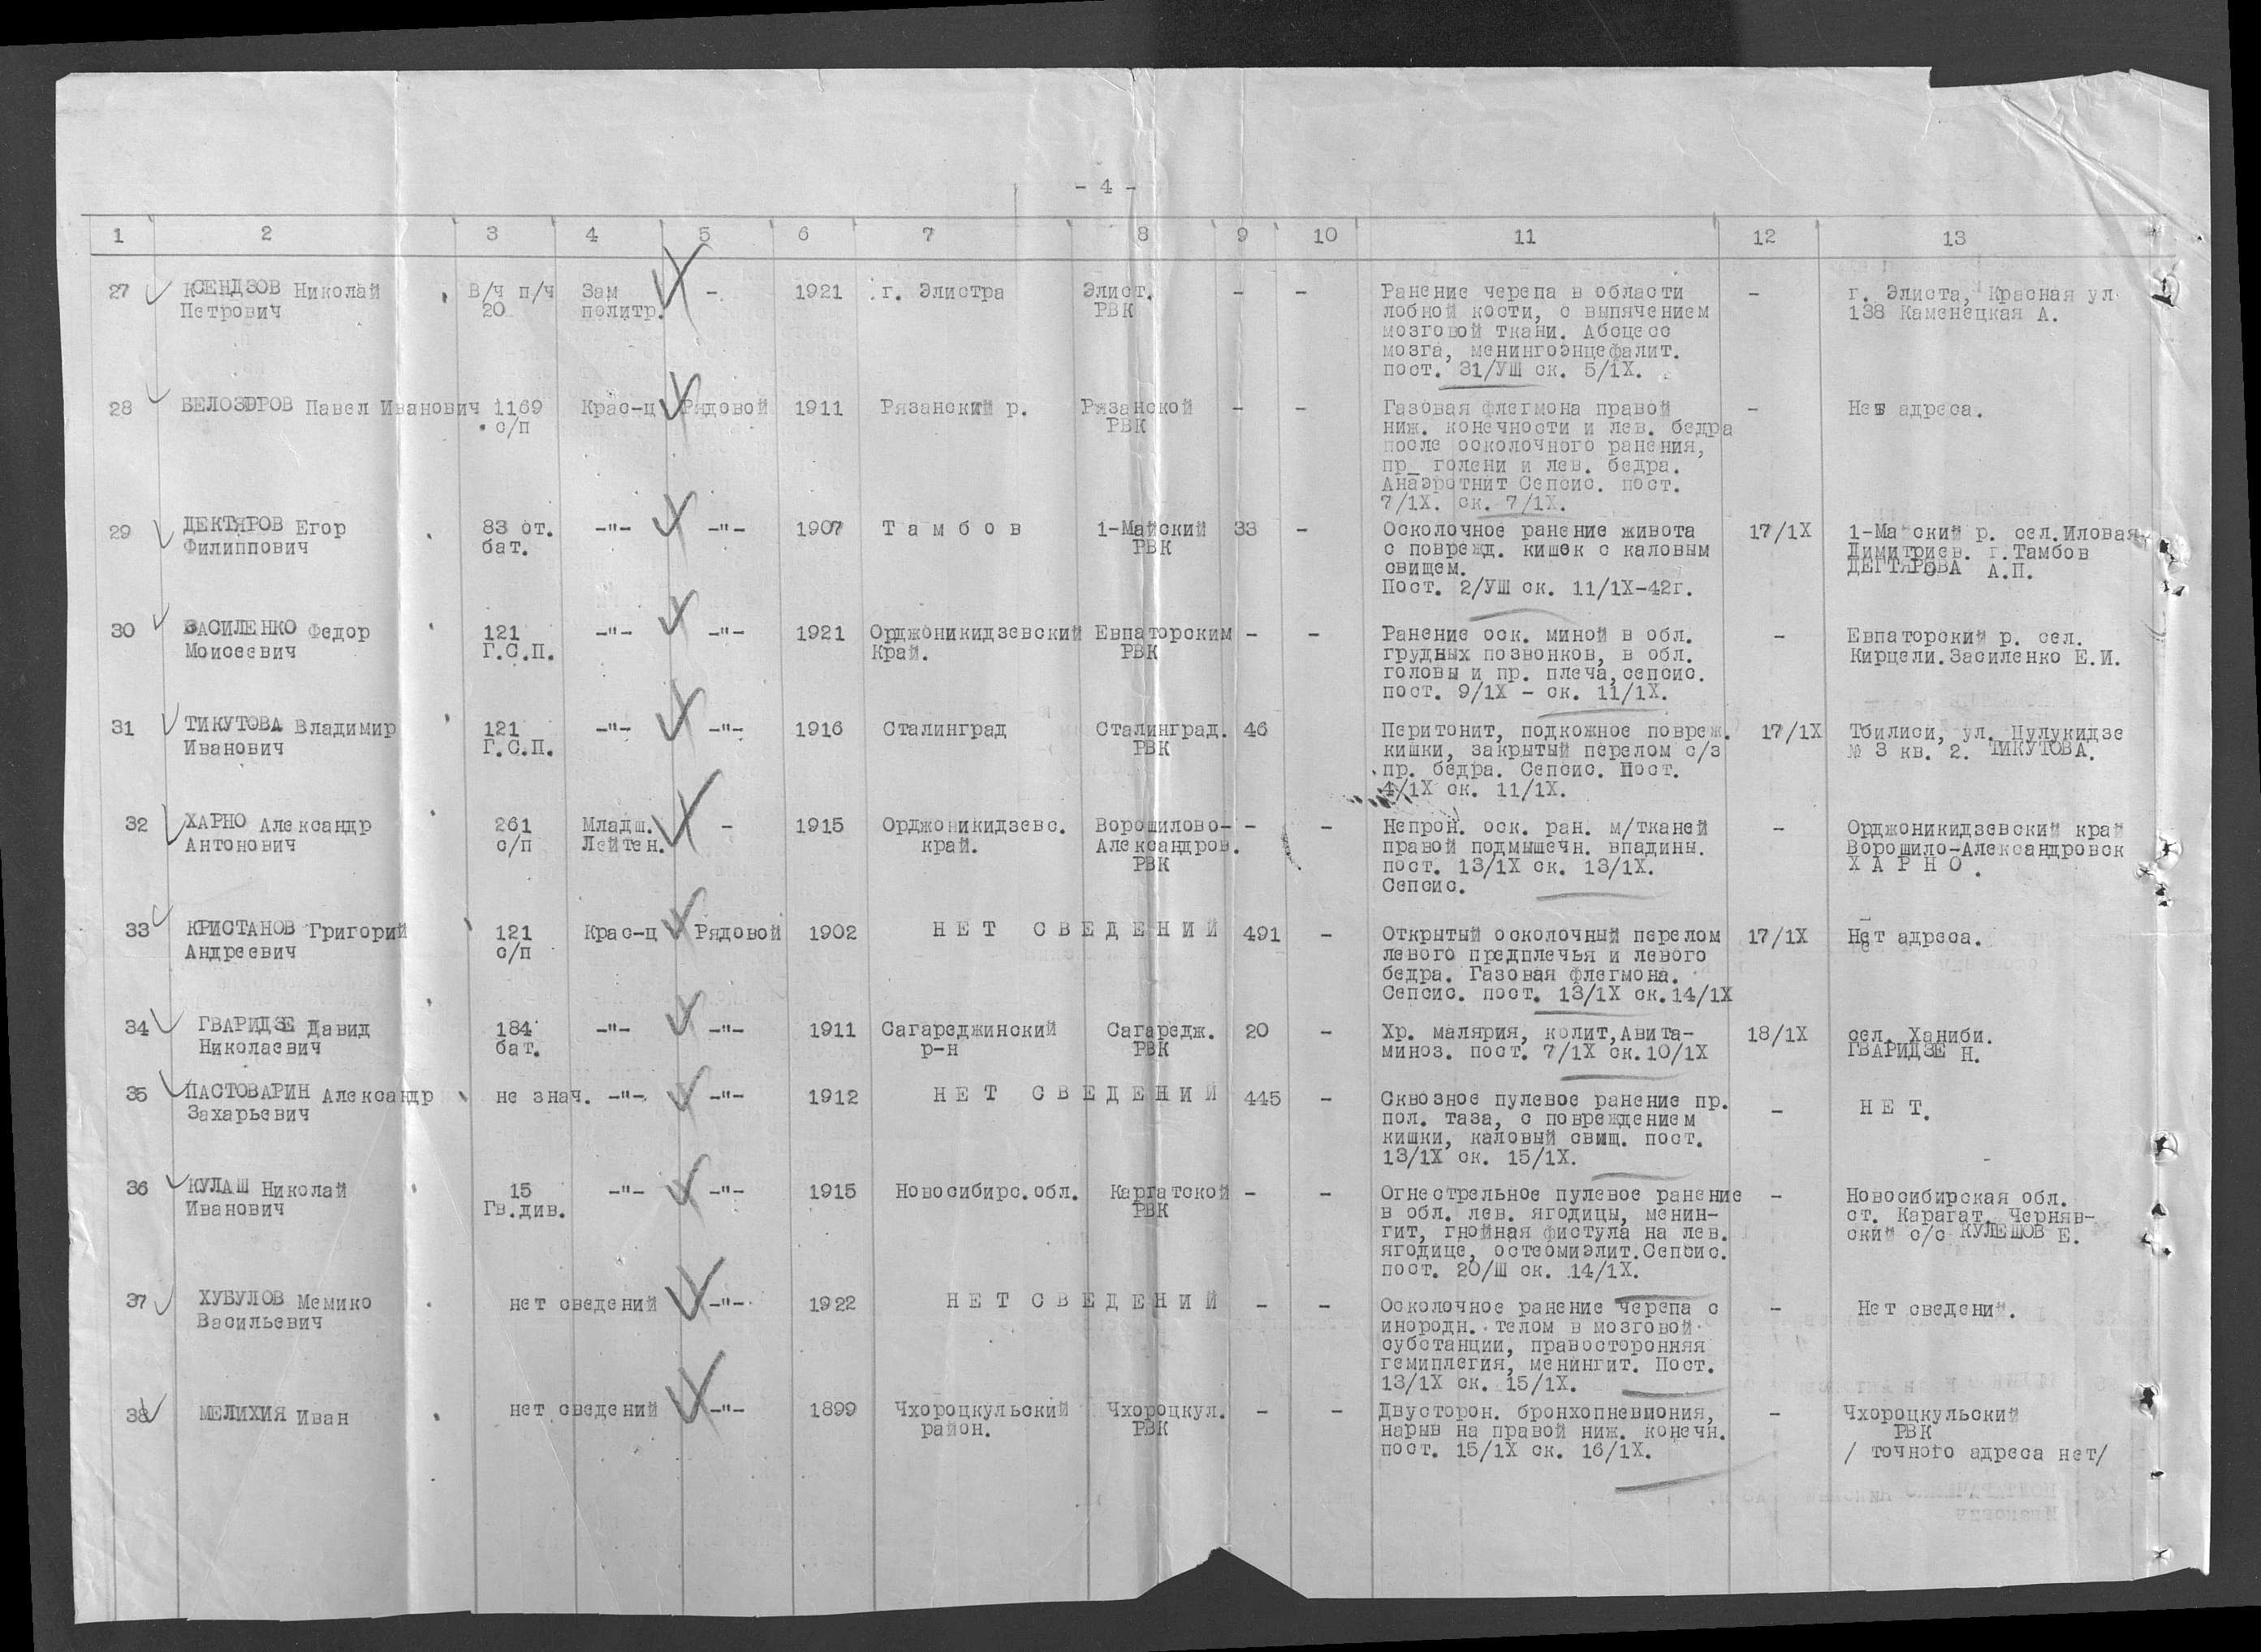 - 4 -
1 2 3 4 5 6 7 8 9 10 11 12 13
27 КСЕНДЗОВ Николай В/ч п/ч Зам - 1921 г. Элистра Элист. - - Ранение черепа в области - г. Элиста, Красная ул.
Петрович 20 политр. РВК лобной кости, с выпячением 138 Каменецкая А.
мозговой ткани. Абсцесс
мозга, менингоэнцефалит.
пост. 31/УШ ск. 5/1Х.
28 БЕЛОЗОРОВ Павел Иванович 1169 Крас-ц Рядовой 1911 Рязанский р. Рязанской - - Газовая флегмона правой - Нет адреса.
с/п РВК ниж. конечности и лев. бедра
после осколочного ранения,
пр_ голени и лев. бедра.
Анаэротнит Сепсис. пост.
7/1Х. ск. 7/1Х.
29 ДЕКТЯРОВ Егор 83 от. -"- -"- 1907 Т а м б о в 1-Майский 33 - Осколочное ранение живота 17/1Х 1-Майский р. сел.Иловая
Филиппович бат. РВК с поврежд. кишек с каловым Димитриев. г.Тамбов
свищем. ДЕГТЯРОВА А.П.
Пост. 2/УШ ск. 11/1Х-42г.
30 ЗАСИЛЕНКО Федор 121 -"- -"- 1921 Орджоникидзевский Евпаторским - - Ранение оск. миной в обл. - Евпаторский р. сел.
Моисеевич Г.С.П. Край. РВК грудных позвонков, в обл. Кирцели.Засиленко Е.И.
головы и пр. плеча,сепсис.
пост. 9/1Х - ск. 11/1Х.
31 ТИКУТОВА Владимир 121 -"- -"- 1916 Сталинград Сталинград. 46 Перитонит, подкожное повреж. 17/1Х Тбилиси, ул. Цулукидзе
Иванович Г.С.П. РВК кишки, закрытый перелом с/з № 3 кв. 2. ТИКУТОВА.
пр. бедра. Сепсис. Пост.
4/1Х ск. 11/1Х.
32 ХАРНО Александр 261 Младш. - 1915 Орджоникидзевс. Ворошилово- - - Непрон. оск. ран. м/тканей - Орджоникидзевский край
Антонович с/п Лейтен. край. Александров. правой подмышечн. впадины. Ворошило-Александровск
РВК пост. 13/1Х ск. 13/1Х. Х А Р Н О .
Сепсис.
33 КРИСТАНОВ Григорий 121 Крас-ц Рядовой 1902 Н Е Т С В Е Д Е Н И Й 491 - Открытый осколочный перелом 17/1Х Нет адреса.
Андреевич с/п левого предплечья и левого
бедра. Газовая флегмона.
Сепсис. пост. 13/1Х ск.14/1Х
34 ГВАРИДЗЕ Давид 184 -"- -"- 1911 Сагареджинский Сагаредж. 20 - Хр. малярия, колит,Авита- 18/1Х сел. Ханиби.
Николаевич бат. р-н РВК миноз. пост. 7/1Х ск.10/1Х ГВАРИДЗЕ Н.
35 ПАСТОВАРИН Александр не знач. -"- -"- 1912 Н Е Т С В Е Д Е Н И Й 445 - Сквозное пулевое ранение пр. - Н Е Т.
Захарьевич пол. таза, с повреждением
кишки, каловый свищ. пост.
13/1Х ск. 15/1Х.
36 КУЛАШ Николай 15 -"- -"- 1915 Новосибирс.обл. Каргатской - - Огнестрельное пулевое ранение - Новосибирская обл.
Иванович Гв.див. РВК в обл. лев. ягодицы, менин- ст. Карагат. Черняв-
гит, гнойная фистула на лев. ский с/с КУЛЕШОВ Е.
ягодице, остеомиэлит.Сепсис.
пост. 20/Ш ск. 14/1Х.
37 ХУБУЛОВ Мемико нет сведений -"- 1922 Н Е Т С В Е Д Е Н И Й - - Осколочное ранение черепа с - Нет сведений.
Васильевич инородн. телом в мозговой
субстанции, правосторонняя
гемиплегия, менингит. Пост.
13/1Х ск. 15/1Х.
38 МЕЛИХИЯ Иван нет сведений -"- 1899 Чхороцкульский Чхороцкул. - - Двусторон. бронхопневиония, - Чхороцкульский
район. РВК нарыв на правой ниж. конечн. РВК
пост. 15/1Х ск. 16/1Х. / точного адреса нет/